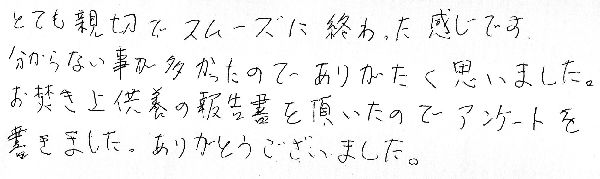 とても親切でスムーズに終わった感じです.
分からない事が多かったのでありがたく思いました。
お焚き上供養の報告書を頂いたのでアンケートを
書きました。ありがとうございました。